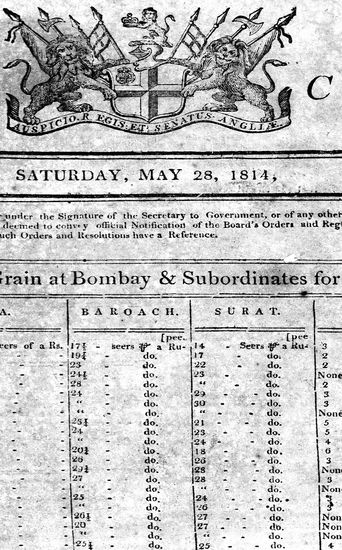 AUSPICIO. REGIS. ET. SENATUS. ANGLIÆ.
C
SATURDAY, MAY 28, 1814,
under the Signature of the Secretary to Government, or of any other
deemed to convey official Notification of the Board's Orders and Reg
such Orders and Resolutions have a Reference.
Grain at Bombay & Subordinates for
A. BAROACH. SURAT.
eers of a Rs. 17½ - seers a Ru- [pee. 14 - Seers a Ru- [pee 3
- - do. 17 - do. 2
- 23 - do. 22 - do. 2
- - do. 23 - do. None
- 28 - do. " - do. 2
- 24 - do. 29 - do. 3
- " - do. 30 - do. 3
- " - do. " - do. None
- - do. 21 - do. 5
- 24 - do. 23 - do. 5
- " - do. 24 - do. 4
- - do. 18 - do. 6
- 26 - do. 26 - do. 3
- - do. 28 - do. None
- 27 - do. 28 - do. 3
- " - do. " - do. None
- 25 - do. 24 - do.
- " - do. 26 - do. 3
- - do. 27 - do. None
- 20 - do. 27 - do. None
- " - do. " - do. None
- - do. 25 - do. 4